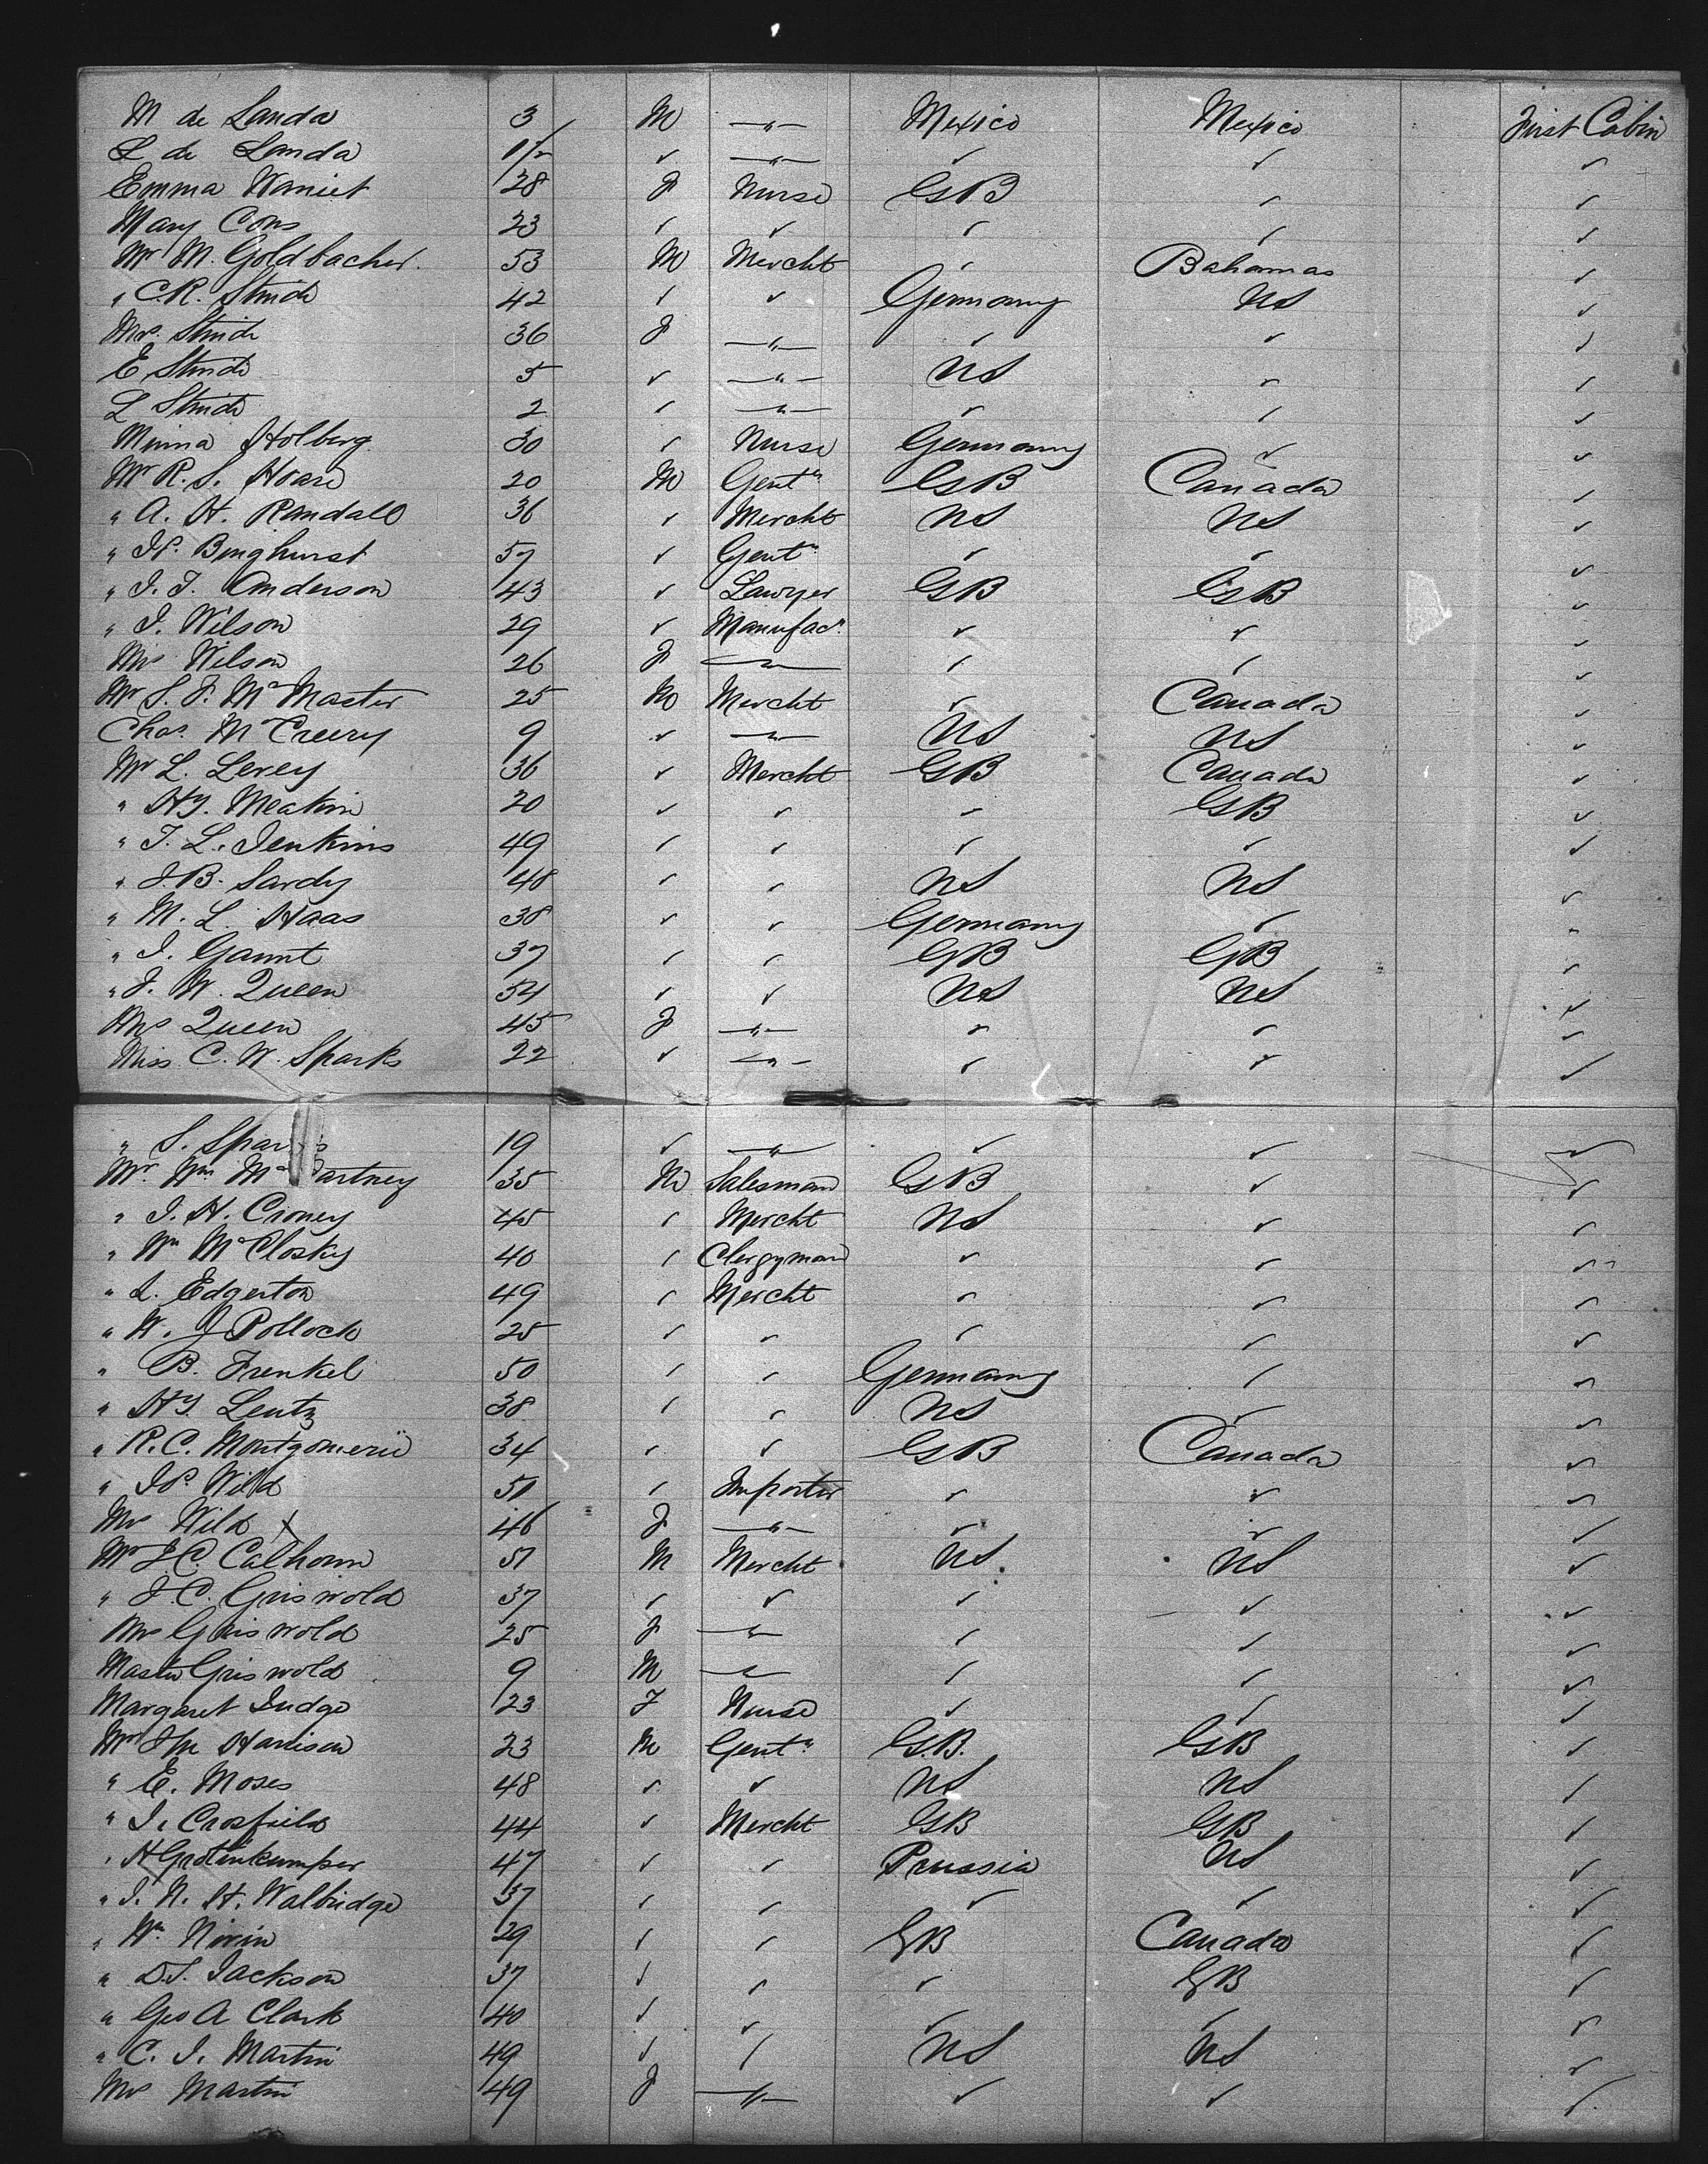 M de Landa 3 M —"— Mexico Mexico First Cabin
L de Landa 1/2 ✓ —"— ✓ ✓ ✓
Emma 28 F Nurse GB ✓ ✓
Mary Cons 23 ✓ ✓ ✓ ✓ ✓
Mr M. Goldbacher. 53 M Mercht ✓ Bahamas ✓
" C.R. 42 ✓ ✓ Germany US ✓
Mrs. 36 F —"— ✓ ✓ ✓
E 5 ✓ —"— US ✓ ✓
L 2 ✓ —"— ✓ ✓ ✓
Minna Holberg 30 ✓ Nurse Germany ✓ ✓
Mr R.S. Hoare 20 M Gentn GB Canada ✓
" A. H. Randall 36 ✓ Mercht US US ✓
" Binghurst 57 ✓ Gentn ✓ ✓ ✓
" J. T. Anderson 43 ✓ Lawyer GB GB ✓
" J. Wilson 29 ✓ Manufacr. ✓ ✓ ✓
Mrs Wilson 26 F —"— ✓ ✓ ✓
Mr S. F. McMaster 25 M Mercht ✓ Canada ✓
Chas. McCreery 9 ✓ —"— US US ✓
Mr L. Levey 36 ✓ Mercht GB Canada ✓
" Hy. Meakin 20 ✓ ✓ ✓ GB ✓
" T. L. Jenkins 49 ✓ ✓ ✓ ✓ ✓
" J.B. Sardy 48 ✓ ✓ US US ✓
" M. L. Haas 38 ✓ ✓ Germany ✓ "
" J. Gaunt 37 ✓ ✓ GB GB ✓
" J. W. Queen 54 ✓ ✓ US US ✓
Mrs Queen 45 F —"— ✓ ✓ ✓
Miss C. W. Sparks 22 ✓ —"— ✓ ✓ ✓
" S. Spar s 19 ✓ —"— ✓ ✓ ✓
Mr. Wm Mc artney 35 M Salesman GB ✓ ✓
" J. H. Croney 45 ✓ Mercht US ✓ ✓
" Wm McClosky 40 ✓ Clergyman ✓ ✓ ✓
" L. Edgerton 49 ✓ Mercht ✓ ✓ ✓
" W. J Pollock 25 ✓ ✓ ✓ ✓ ✓
" B. Frenkel 50 ✓ ✓ Germany ✓ ✓
" Hy. Lentz 38 ✓ ✓ US ✓ ✓
" R.C. Montgomerie 34 ✓ ✓ GB Canada ✓
" Wild 51 ✓ Importer ✓ ✓ ✓
Mrs Wild X 46 F —"— ✓ ✓ ✓
Mr J C. Calhoun 51 M Mercht US US ✓
" J. C. Griswold 37 ✓ ✓ ✓ ✓ ✓
Mrs Griswold 25 F —"— ✓ ✓ ✓
Master Griswold 9 M —"— ✓ ✓ ✓
Margaret Judge 23 F Nurse ✓ ✓ ✓
Mr Harrison 23 M Gentn G.B. GB ✓
" E. Moses 48 ✓ ✓ US US ✓
" J. Crosfield 44 ✓ Mercht GB GB ✓
" H Grotenkemper 47 ✓ ✓ Prussia US ✓
" J. N. H. Walbridge 37 ✓ ✓ ✓ ✓ ✓
" Wm. Nivin 29 ✓ ✓ GB Canada ✓
" D.S. Jackson 37 ✓ ✓ ✓ GB ✓
" Geo A Clark 40 ✓ ✓ ✓ ✓ ✓
" C. J. Martin 49 ✓ ✓ US US ✓
Mrs Martin 49 F —"— ✓ ✓ ✓